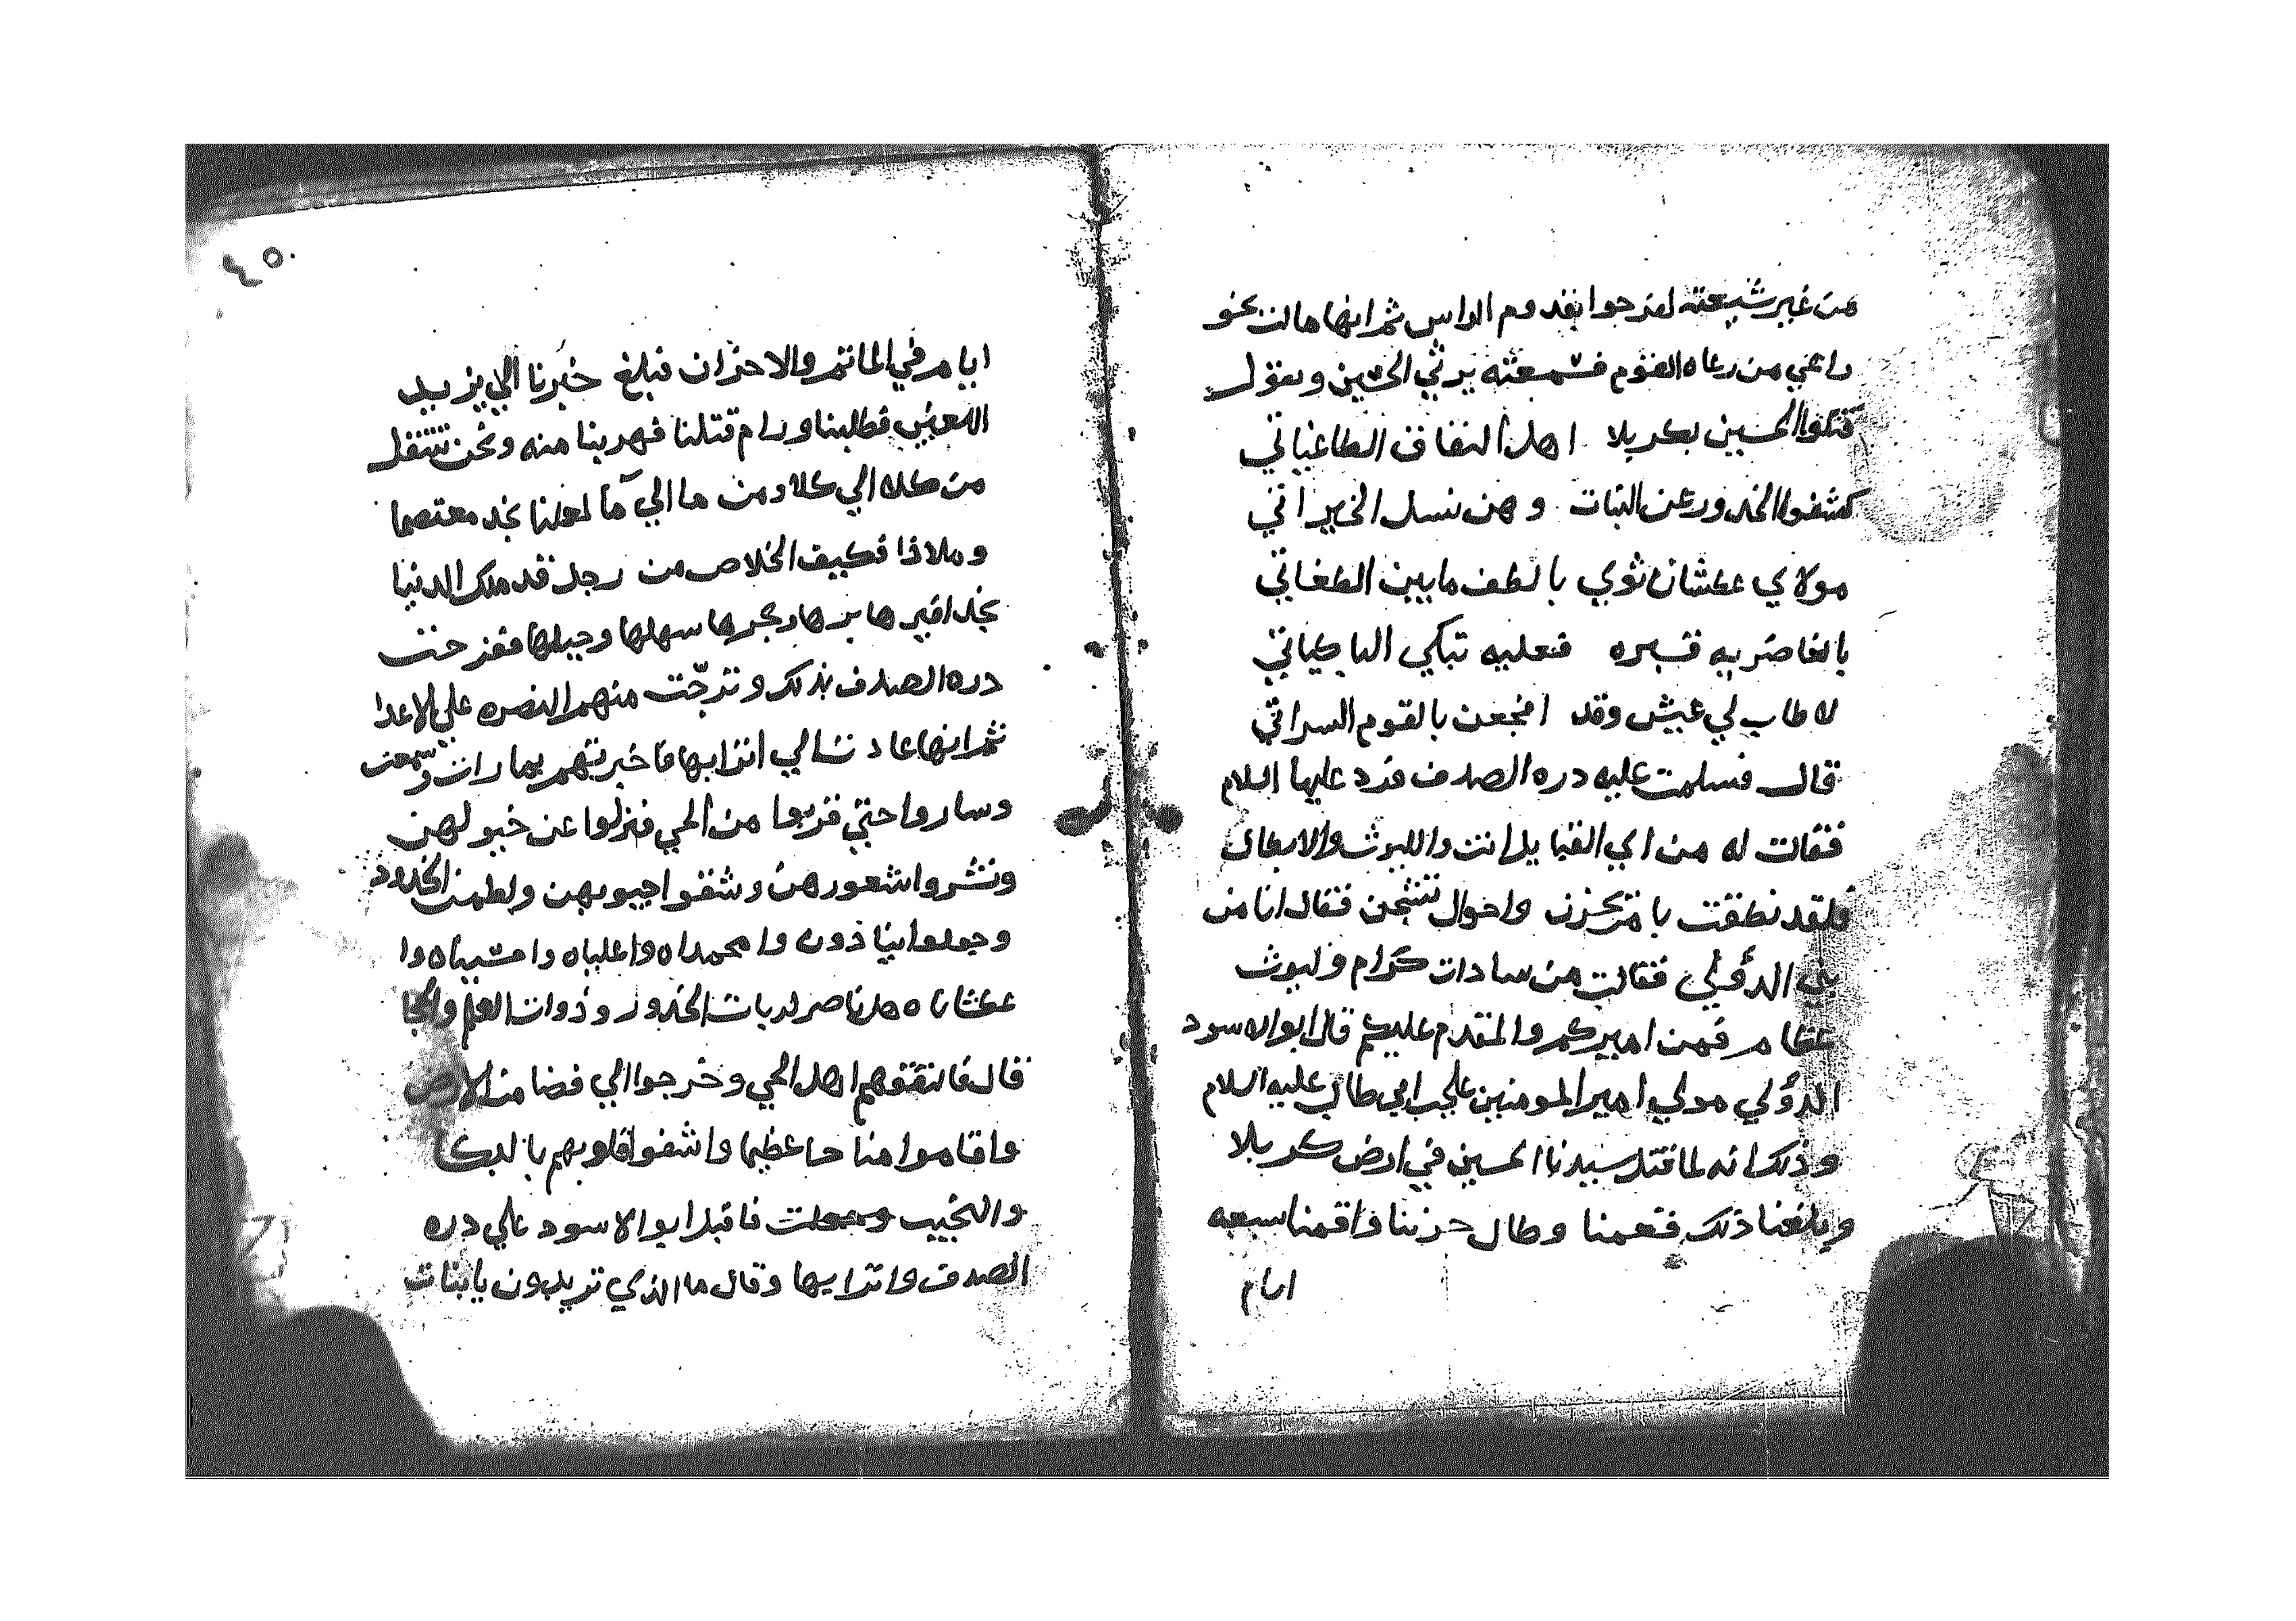 من غير شيعته لفرحوا بقدوم الراس ثم انها مالت نحو
راعي من رعاه القوم فسمعته يرثي الحسين ويقول
قتلوا الحسين بكربلا اهل النفاق الطاغياتي
كشفوا الخدور عن البنات وهن نسل الخيراتي
مولاي عطشان ثوي بالطف مابين الطغاتي
بالغاضريه قبره فعليه تبكي الباكياتي
لا طاب لي عيش وقد افجعن بالقوم السراتي
قال فسلمت عليه دره الصدف فرد عليها السلام
فقالت له من اي القبايل انت والليوث والابطال
فلقد نطقت با متحزن واحوال تشجن فقال انا من
بني الدؤلي فقالت من سادات كرام وليوث
عظام فمن اميركم والمقدم عليكم قال ابوالاسود
الدؤلي مولي امير المومنين علي بن ابي طالب عليه السلام
وذلك انه لما قتل سيدنا الحسين في ارض كربلا
وبلغنا ذلك فقمنا وطال حزننا واقمنا سبعه
ايام
٤٥
ايام في الماتم والاحزان فبلغ خبرنا الي يزيد
اللعين فطلبنا ورام قتلنا فهربنا منه ونحن ننتقل
من كلاه الي كلا ومن ما الي مآ لعلنا نجد معتصما
وملاذا فكيف الخلاص من رجل قد ملك الدنيا
بحذافيرها برها وبحرها سهلها وجبلها ففرحت
دره الصدف بذلك وترجّت منهم النصره علي الاعدا
ثم انها عادت الي اترابها فاخبرتهم بما رات وسمعت
وساروا حتي قربوا من الحي فنزلوا عن خيولهن
ونشروا شعورهن وشقوا جيوبهن ولطمن الخدود
وجعلوا ينادون وا محمداه واعلياه واحسيناه وا
عطشاناه هل ناصر لربات الخدور وذوات العلم والحجا
قال فانتقتهم اهل الحي وخرجوا الي فضا من الارض
واقاموا مناحا عظيما واشفوا قلوبهم بالبكا
والنحيب وجعلت فاقبل ابوالاسود علي دره
الصدف واترابها وقال ما الذي تريدون يابنات